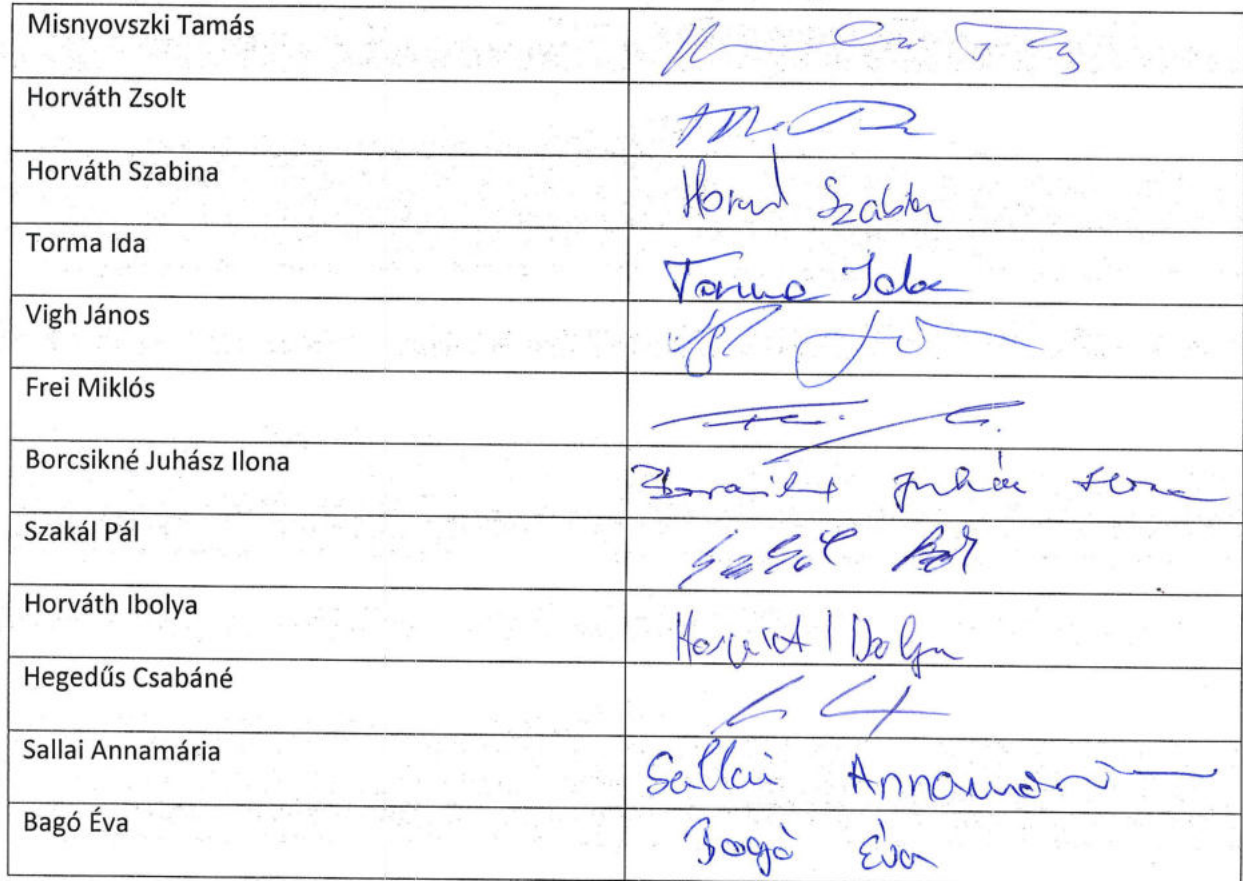 Misnyovszki Tamás
Horváth Zsolt
Horváth Szabina
Horvát Szabina
Torma Ida
Torma Ida
Vigh János
Frei Miklós
Borcsikné Juhász Ilona
Juhász Ilona
Szakál Pál
Szakál Pál
Horváth Ibolya
Horvát Ibolya
Hegedűs Csabáné
Sallai Annamária
Sallai Annamária
Bagó Éva
Bagó Éva